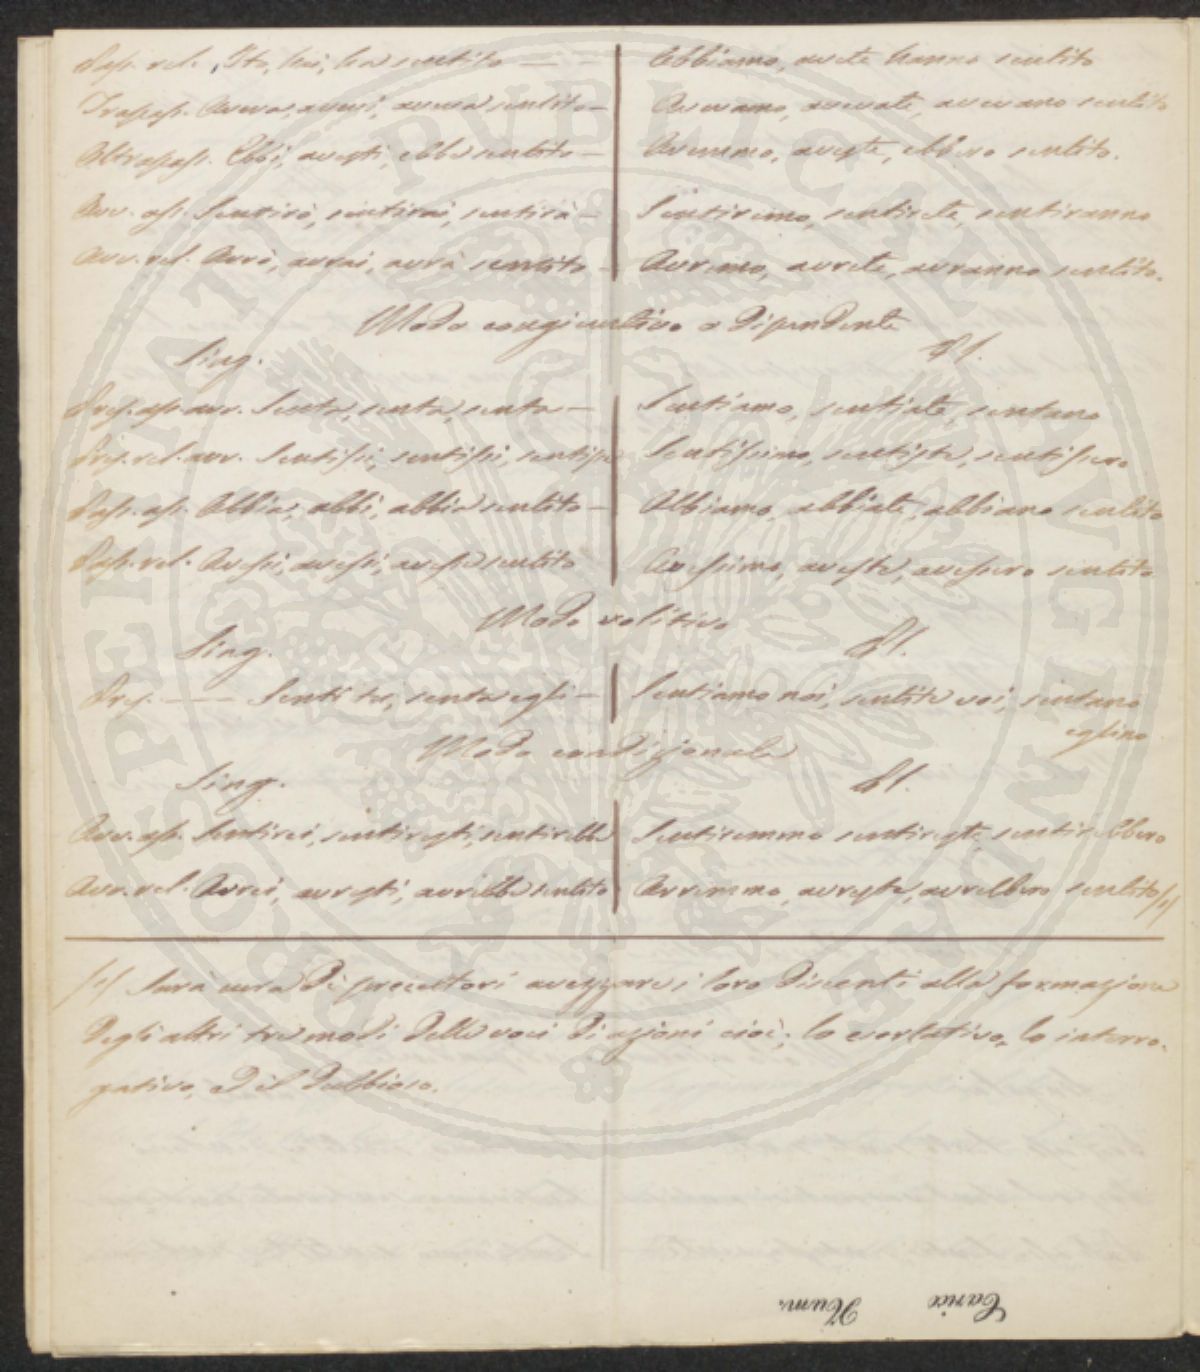 Pass. rel. Ho, hai, ha sentito — Abbiamo, avete hanno sentito
Trapass. Aveva, avevi, aveva sentito — Avevamo, avevate, avevano sentito
Oltrapass. Ebbi, avesti, ebbe sentito — Avemmo, aveste, ebbero sentito.
Avv. ass. Sentirò, sentirai, sentirà — Sentiremo, sentirete, sentiranno
Avv. rel. Avrò, avrai, avrà sentito — Avremo, avrete, avranno sentito.
Modo congiuntivo o dipendente
Sing. Pl.
Pres. ass. avv. Senta, senta, senta — Sentiamo, sentiate, sentano
Pres. rel. avv. Sentissi, sentissi, sentisse Sentissimo, sentiste, sentissero
Pass. ass. Abbia, abbi, abbia sentito — Abbiamo, abbiate, abbiano sentito
Pass. rel. Avessi, avessi, avesse sentito Avessimo, aveste, avessero sentito
Modo volitivo
Sing. Pl.
Pres. — — Senti tu, senta egli — Sentiamo noi, sentite voi, sentano
eglino
Modo condizionale
Sing. Pl.
Avv. ass. Sentirei, sentiresti, sentirebbe Sentiremmo sentireste, sentirebbero
Avv. rel. Avrei, avresti, avrebbe sentito Avremmo, avreste, avrebbero sentito /1/
/1/ Sarà cura di precettori avezzare i loro discenti alla formazione
degli altri tre modi delle voci di azioni cioè; lo esortativo, lo interro-
gativo, ed il dubbioso.
Caria Num.